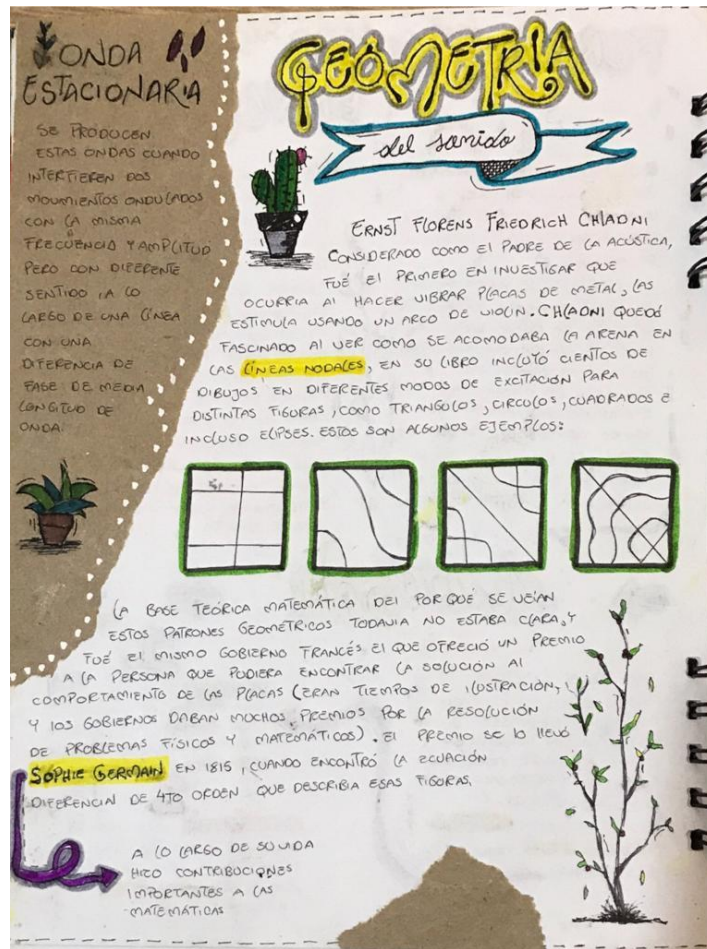 ONDA
ESTACIONARIA
SE PRODUCEN
ESTAS ONDAS CUANDO
INTERFIEREN DOS
MOVIMIENTOS ONDULADOS
CON LA MISMA
FRECUENCIA Y AMPLITUD
PERO CON DIFERENTE
SENTIDO, A LO
LARGO DE UNA LÍNEA
CON UNA
DIFERENCIA DE
FASE DE MEDIA
LONGITUD DE
ONDA.
GEOMETRIA
del sonido
ERNST FLORENS FRIEDRICH CHLADNI
CONSIDERADO COMO EL PADRE DE LA ACÚSTICA,
FUÉ EL PRIMERO EN INVESTIGAR QUE
OCURRIA AL HACER VIBRAR PLACAS DE METAL, LAS
ESTIMULA USANDO UN ARCO DE VIOLIN. CHLADNI QUEDÓ
FASCINADO AL VER COMO SE ACOMODABA LA ARENA EN
LAS LÍNEAS NODALES, EN SU LIBRO INCLUYÓ CIENTOS DE
DIBUJOS EN DIFERENTES MODOS DE EXCITACIÓN PARA
DISTINTAS FIGURAS, COMO TRIANGULOS, CIRCULOS, CUADRADOS E
INCLUSO ELIPSES. ESTOS SON ALGUNOS EJEMPLOS:
LA BASE TEÓRICA MATEMÁTICA DEL POR QUÉ SE VEÍAN
ESTOS PATRONES GEOMETRICOS TODAVIA NO ESTABA CLARA, Y
FUÉ EL MISMO GOBIERNO FRANCÉS EL QUE OFRECIÓ UN PREMIO
A LA PERSONA QUE PUDIERA ENCONTRAR LA SOLUCIÓN AL
COMPORTAMIENTO DE LAS PLACAS (ERAN TIEMPOS DE ILUSTRACIÓN,
Y LOS GOBIERNOS DABAN MUCHOS PREMIOS POR LA RESOLUCIÓN
DE PROBLEMAS FÍSICOS Y MATEMÁTICOS). EL PREMIO SE LO LLEVÓ
SOPHIE GERMAIN EN 1815, CUANDO ENCONTRÓ LA ECUACIÓN
DIFERENCIAL DE 4TO ORDEN QUE DESCRIBIA ESAS FIGURAS.
A LO LARGO DE SU VIDA
HIZO CONTRIBUCIONES
IMPORTANTES A LAS
MATEMÁTICAS